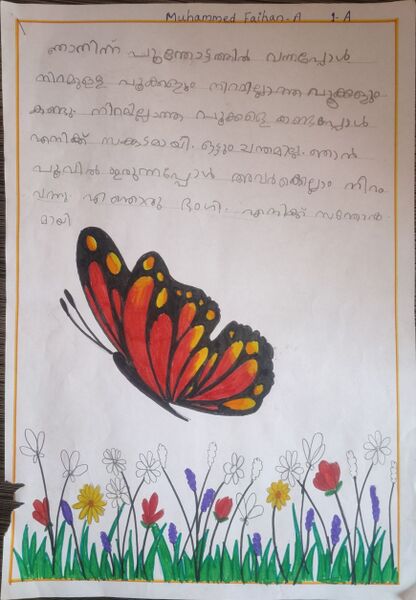 Muhammed Faihan-A 1-A
ഞാനിന്ന് പൂന്തോട്ടത്തിൽ വന്നപ്പോൾ
നിറമുള്ള പൂക്കളും നിറമില്ലാത്ത പൂക്കളും
കണ്ടു നിറമില്ലാത്ത പൂക്കളെ കണ്ടപ്പോൾ
എനിക്ക് സങ്കടമായി. ഒട്ടും ചന്തമില്ല. ഞാൻ
പൂവിൽ ഇരുന്നപ്പോൾ അവർക്കെല്ലാം നിറം
വന്നു എന്തൊരു ഭംഗി. എനിക്ക് സന്തോഷ
മായി